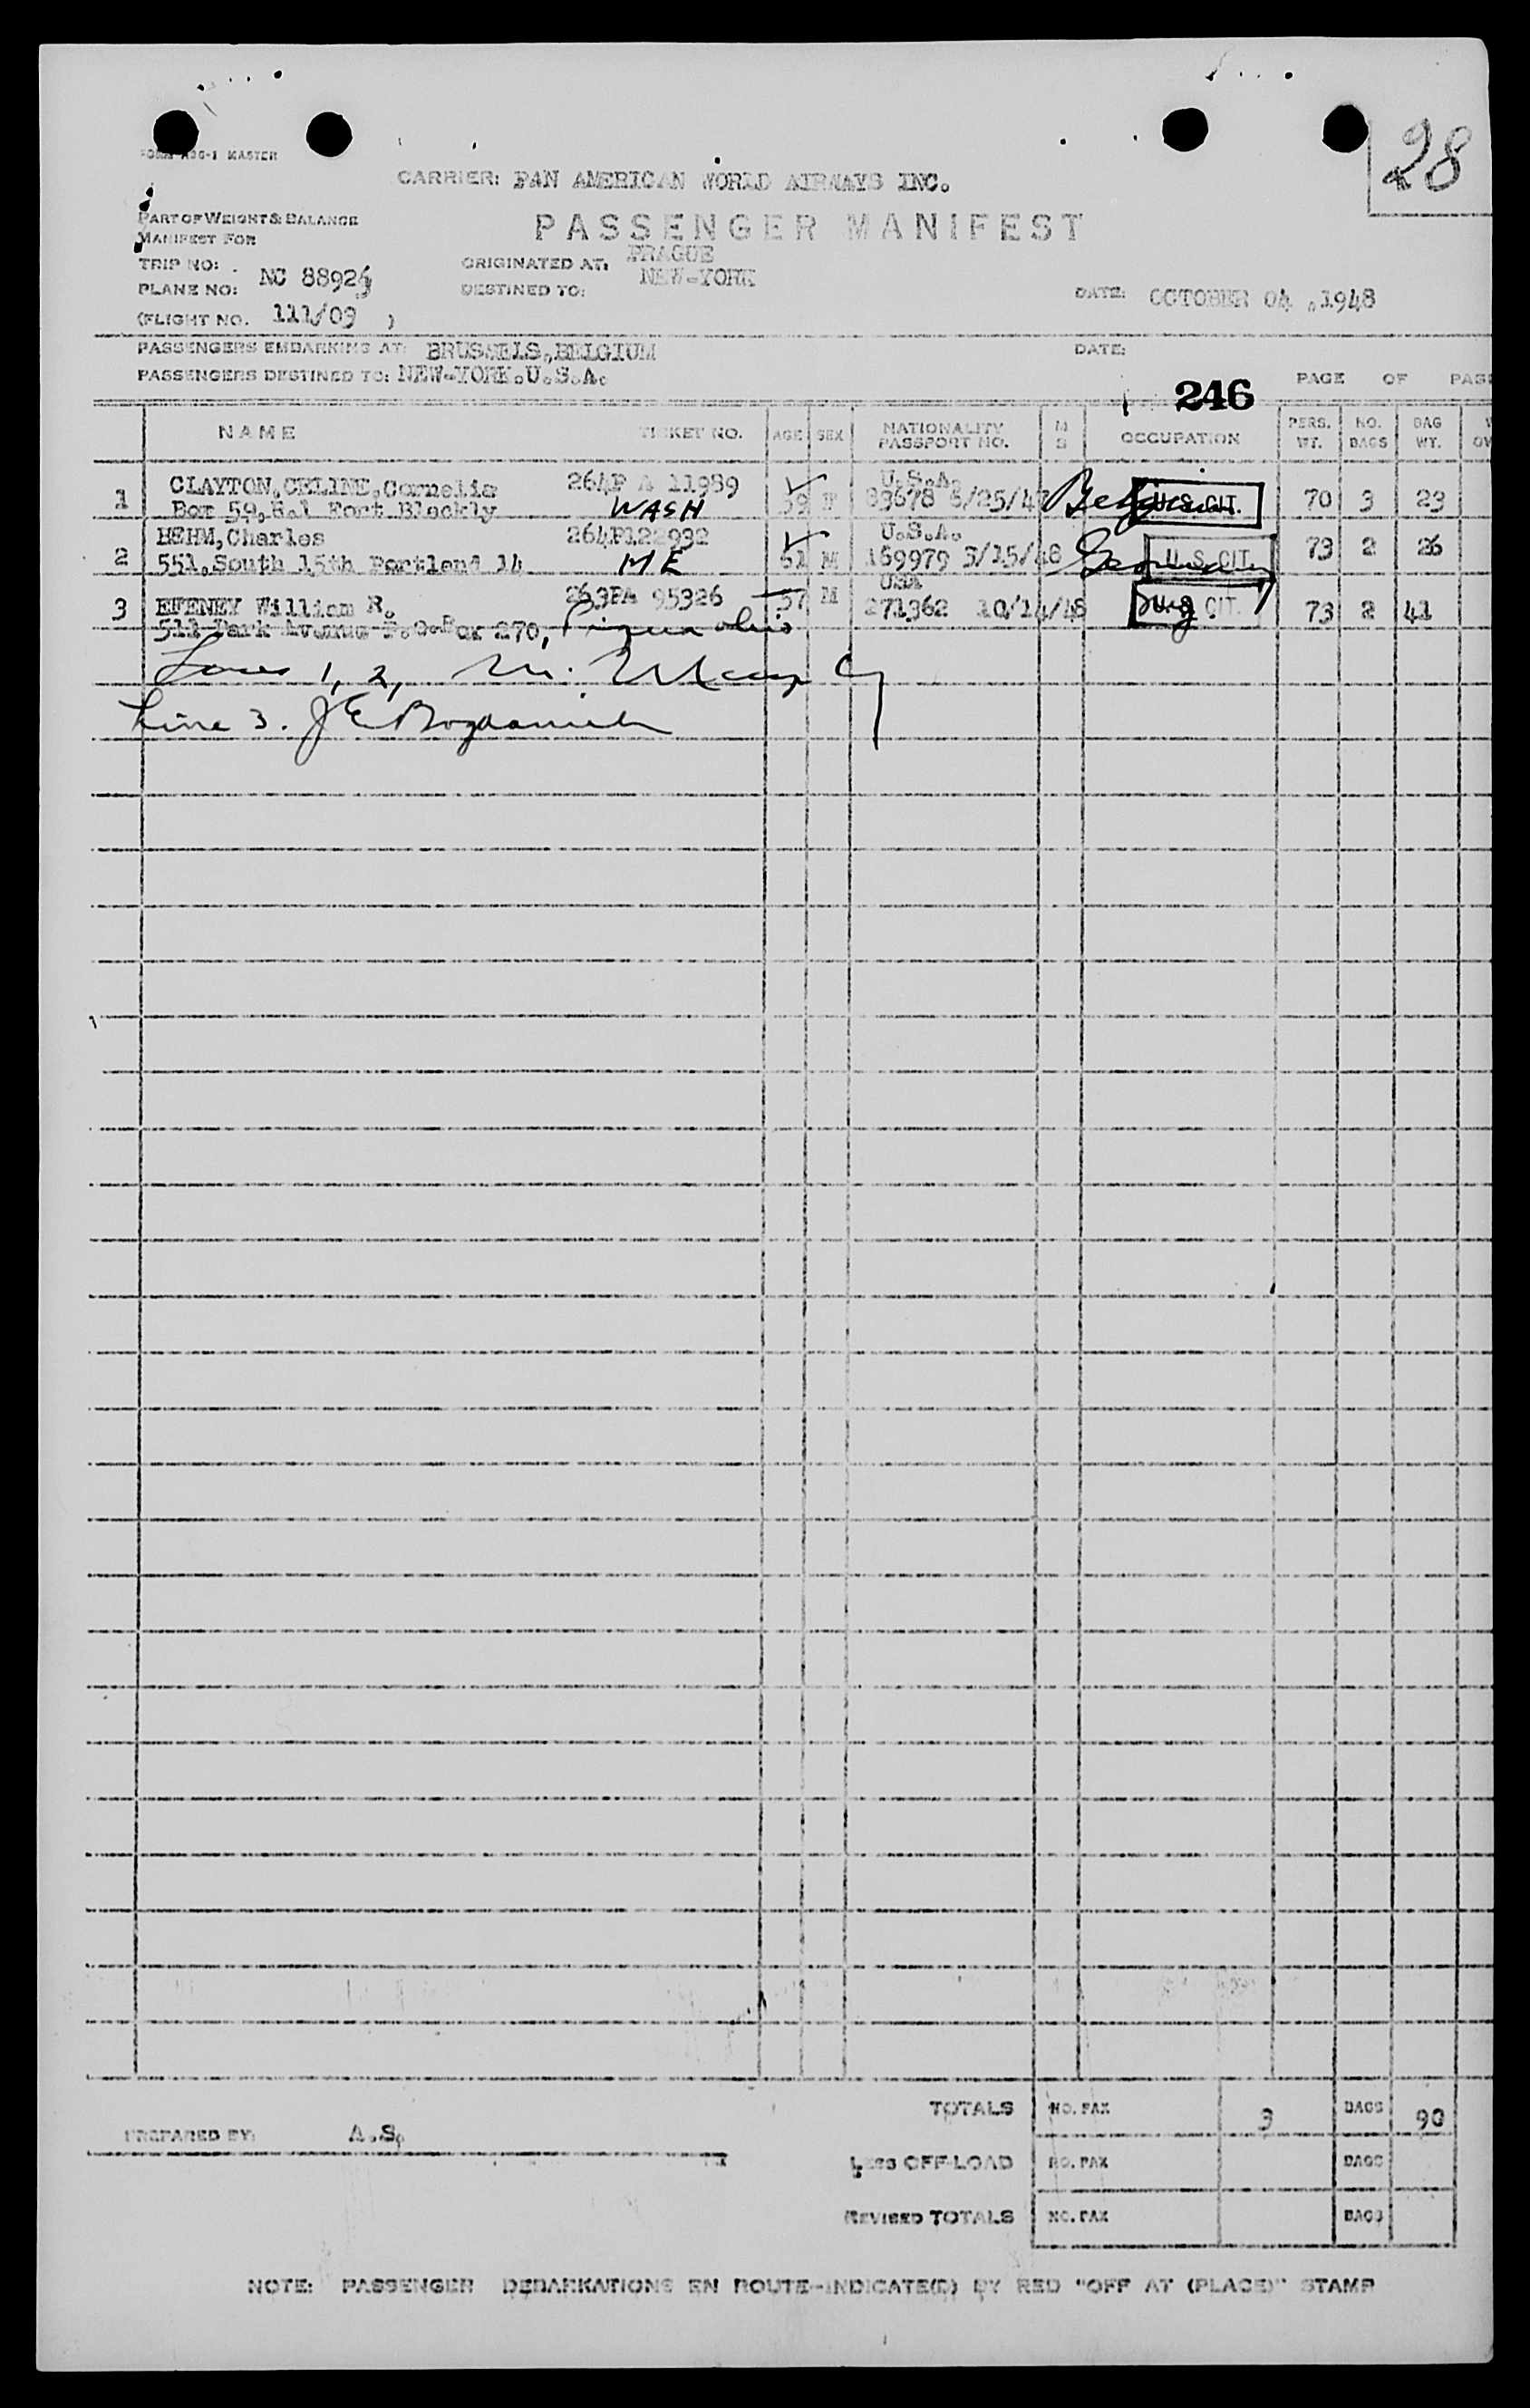 28
FORM MASTER
CARRIER: PAN AMERICAN WORLD AIRWAYS INC.
PART OF WEIGHT & BALANCE
MANIFEST FOR
PASSENGER MANIFEST
TRIP NO:
ORIGINATED AT: PRAGUE
PLANE NO: NC 88925
DESTINED TO: NEW-YORK
DATE: OCTOBER 04 ,1948
(FLIGHT NO. 111/09 )
PASSENGERS EMBARKING AT: BRUSSELS,BELGIUM DATE:
PASSENGERS DESTINED TO: NEW-YORK.U.S.A.
246 PAGE OF
NAME TICKET NO. AGE SEX NATIONALITY PASSPORT NO. M S OCCUPATION PERS. WT. NO. BAGS BAG WT.
1 CLAYTON,CELINE,Cornelia 264P A 11989 59 F U.S.A. 83678 U.S. CIT. 70 3 23
Box 59, Fort Blackly WASH
2 BEHM,Charles 264P122932 51 M U.S.A. 169979 3/15/48 U.S. CIT. 73 2 26
551,South 15th Portland 14 ME
3 EFENEY William R. 263PA 95326 57 M USA 271362 10/14/48 CIT. 73 2 41
511 Park Avenue P.O.Box 270, Piqua Ohio
Lines 1, 2,
Line 3. J E
TOTALS NO. PAX 3 BAGS 90
PREPARED BY: A.S.
LESS OFF-LOAD NO. PAX BAGS
REVISED TOTALS NO. PAX BAGS
NOTE: PASSENGER DEBARKATIONS EN ROUTE-INDICATE(D) BY RED "OFF AT (PLACE)" STAMP